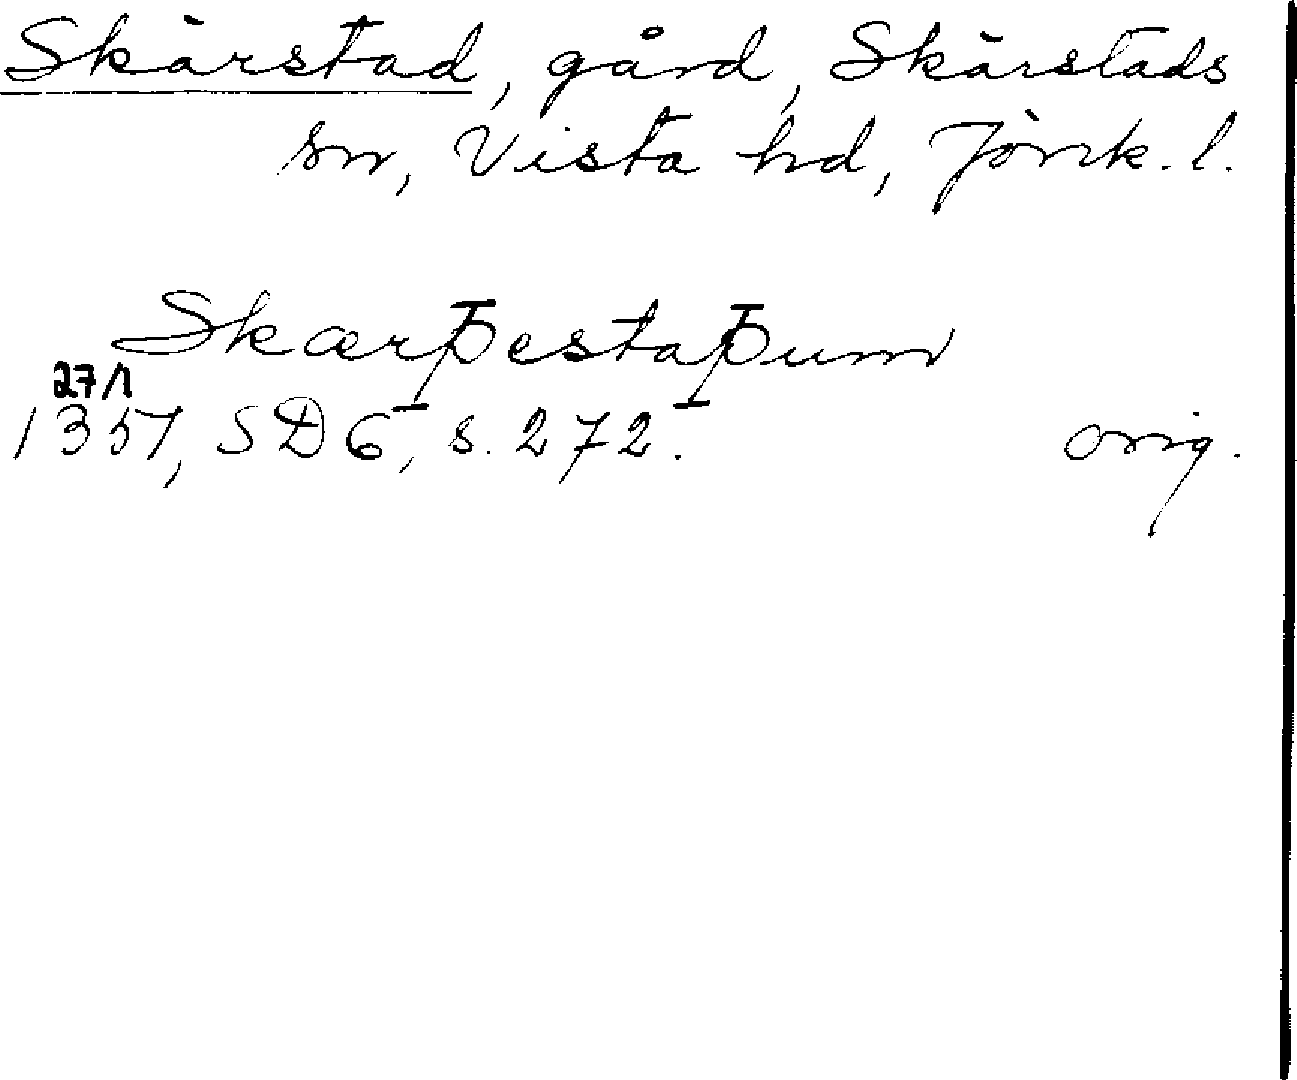 Skärstad, gård, Skärstads
sn, Vista hd, Jönk. l.
Skærþestaþum
27/1
1357, SD 6, s. 272. orig.